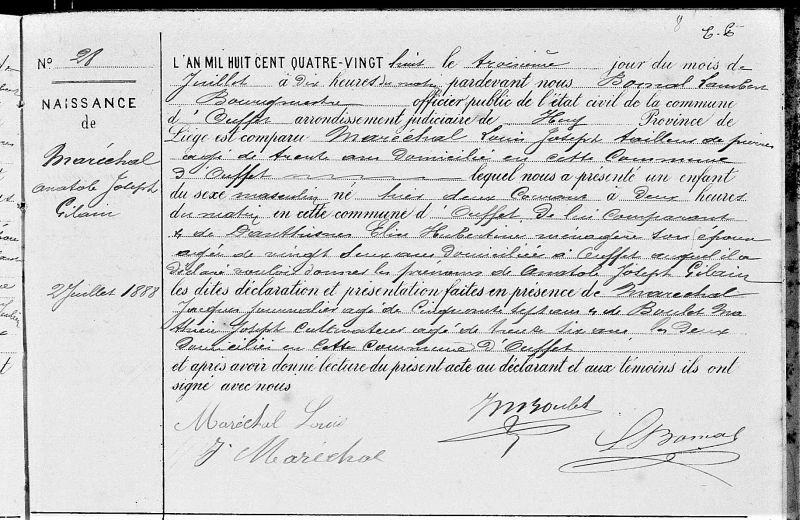 8
N° 28
NAISSANCE
de
Maréchal
Anatole Joseph
Gilain
2 Juillet 1888
L'AN MIL HUIT CENT QUATRE-VINGT huit le troisième jour du mois de
Juillet à Dix heures du matin pardevant nous Bomal Lambert
Bourgmestre officier public de l'état civil de la commune
d'Ouffet arrondissement judiciaire de Huy Province de
Liège est comparu Maréchal Louis Joseph tailleur de pierres
agé de trente ans Domicilié en cette Commune
D'Ouffet lequel nous a présenté un enfant
du sexe masculin né hier deux Courant à Deux heures
du matin en cette commune d'Ouffet De lui Comparant
& de Danthisnes Elise Hubertine ménagère son épouse
agée de vingt deux ans domiciliée à Ouffet auquel il a
déclaré vouloir donner les prénoms de Anatole Joseph Gilain
les dites déclaration et présentation faites en présence de Maréchal
Jacques Journalier agé de Cinquante sept ans & de Boulet Ma
thieu Joseph Cultivateur agé de trente six ans Deux
Domiciliés en Cette Commune D'Ouffet
et après avoir donné lecture du présent acte au déclarant et aux témoins ils ont
signé avec nous
Maréchal Louis
J Maréchal
JMBoulet
L Bomal